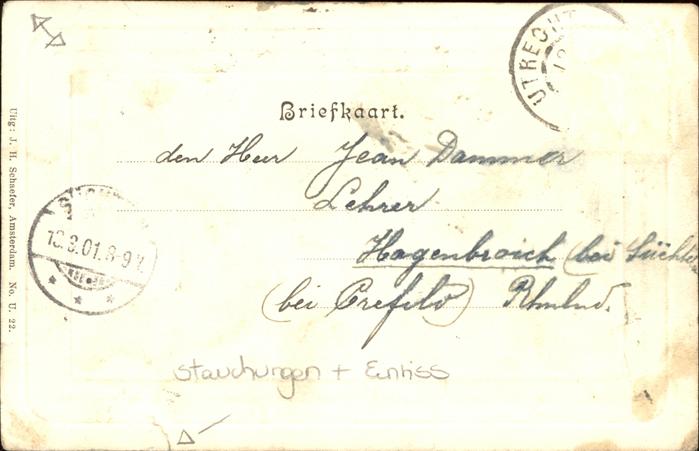 UTRECHT
Briefkaart.
den Heer Jean Dammer
Lehrer
Hagenbroich (bei Süchteln
(bei Crefeld) Rhnlnd.
13.3.01.8-9V.
Uitg: J. H. Schaefer, Amsterdam. No. U. 22.
Stauchungen + Einriss